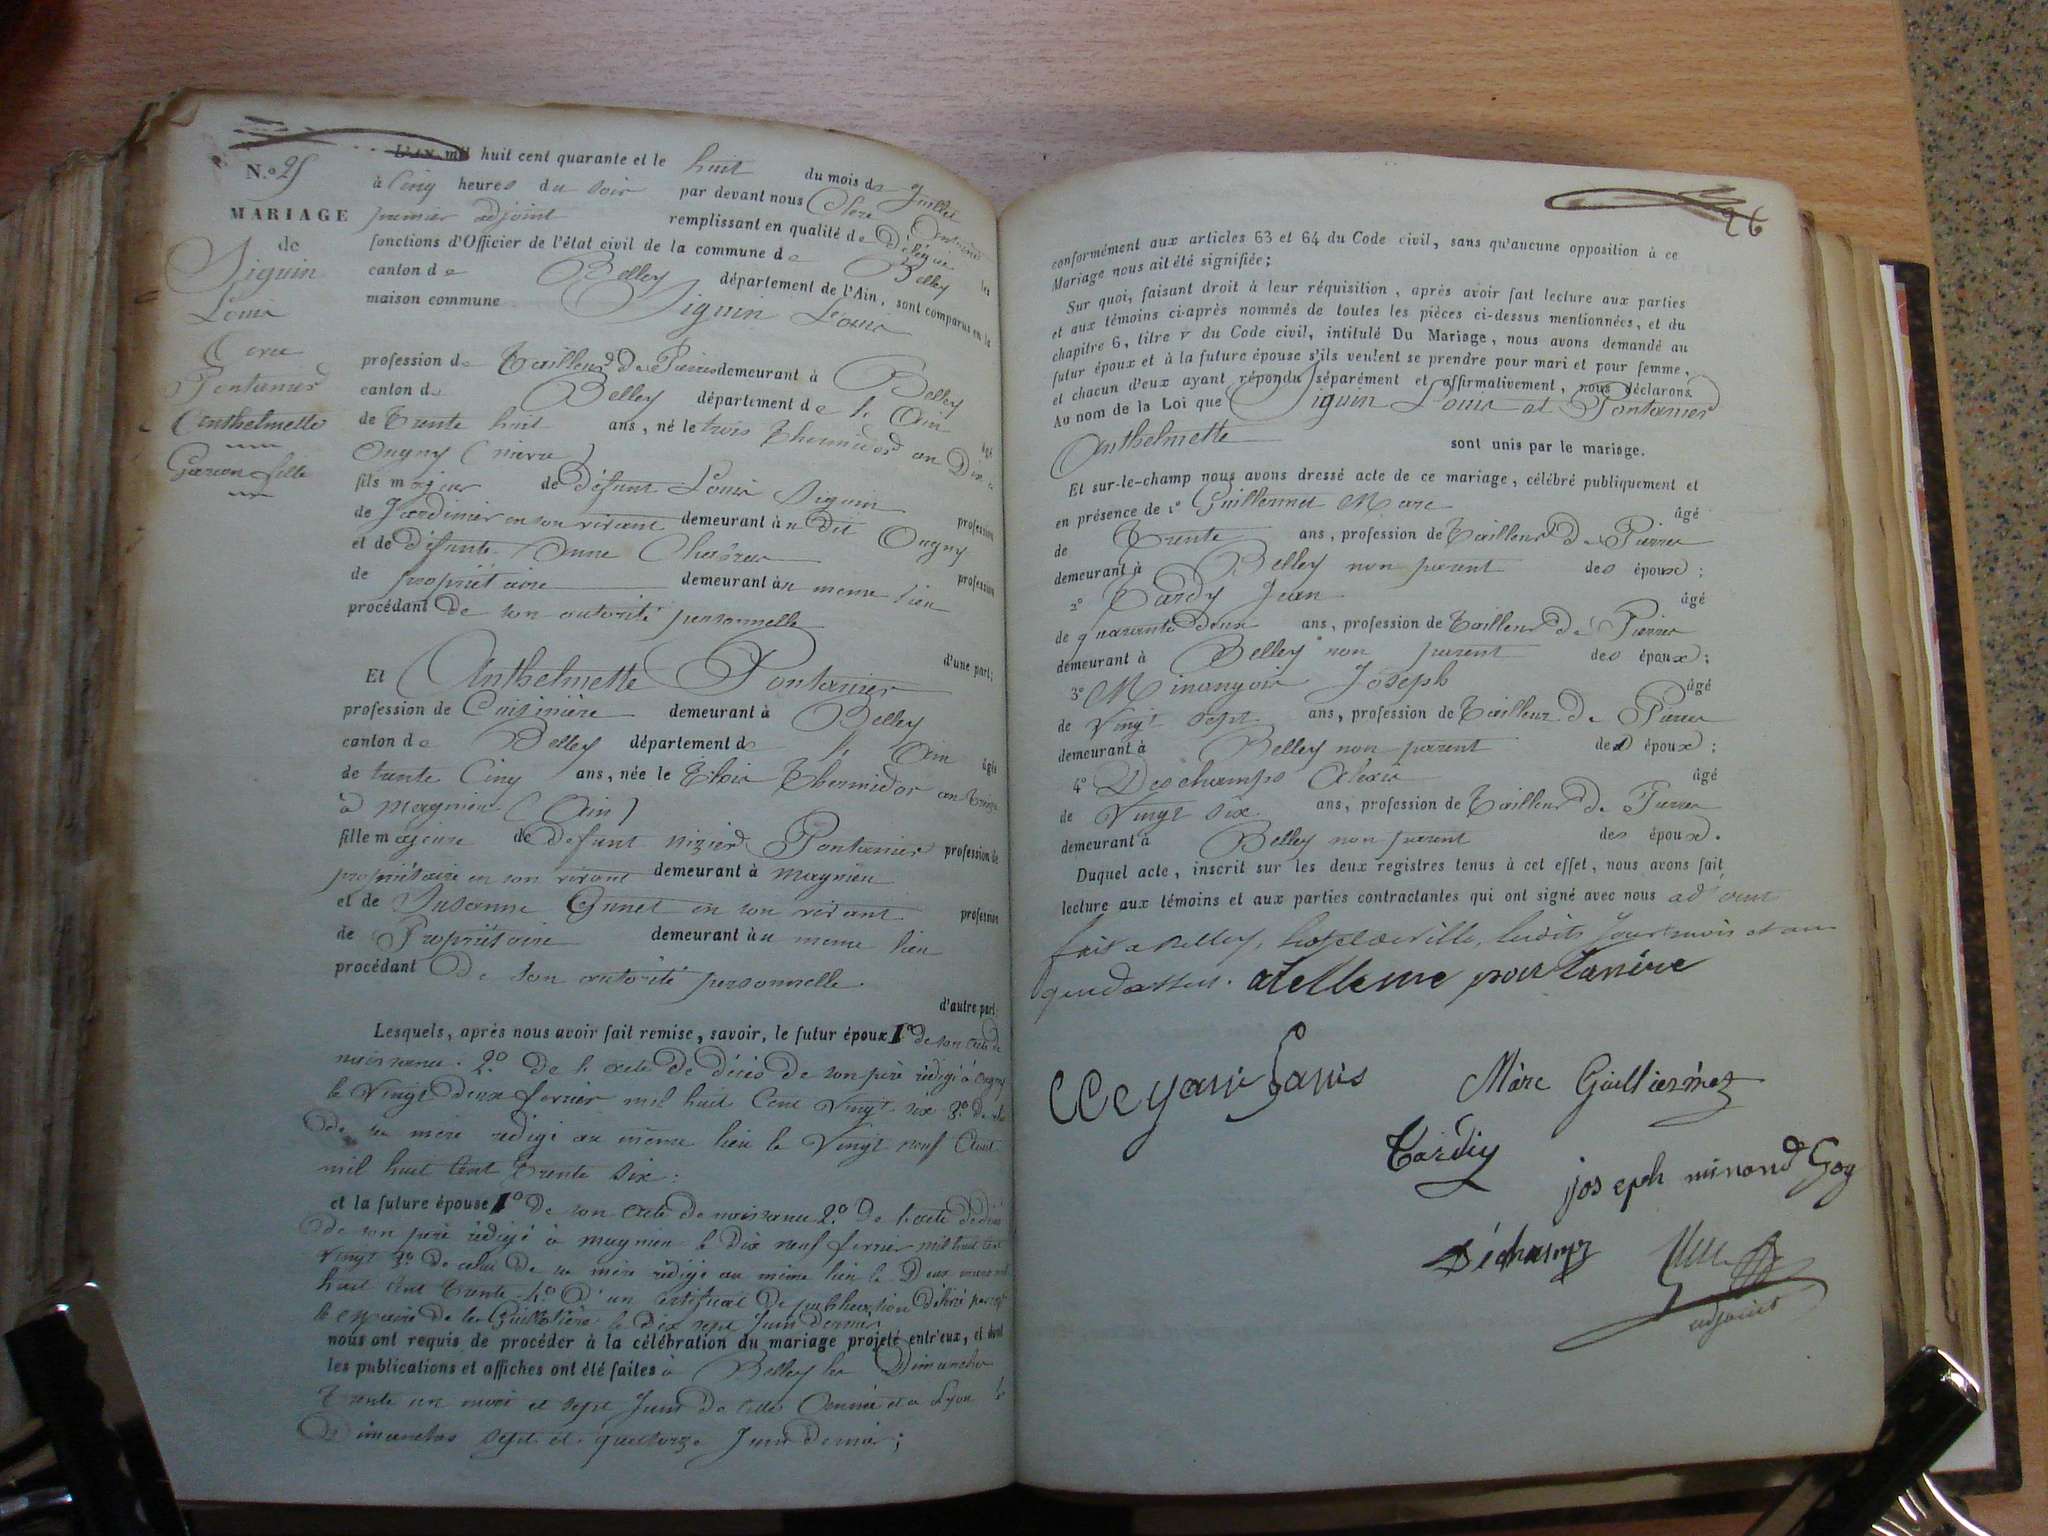 N.º 25
MARIAGE
de
Siguin
Louis
Avec
Pontanier
Anthelmette
Garçon fille
L'AN mil huit cent quarante et le huit du mois de Juillet
à Cinq heures du soir par devant nous
premier adjoint remplissant en qualité de Délégué les
fonctions d'Officier de l'état civil de la commune de Belley
canton de Belley département de l'Ain, sont comparus en la
maison commune Siguin Louis
profession de Tailleur De Pierres demeurant à Belley
canton de Belley département de l'Ain âgé
de Trente huit ans, né le trois Thermidor an Dix à
Ougny (nièvre)
fils majeur de Défunt Louis Siguin profession
de Jardinier en son vivant demeurant au Dit Ougny
et de Défunte Anne profession
de propriétaire demeurant au meme lieu
procédant De son autorité personnelle
d'une part;
Et Anthelmette Pontanier
profession de Cuisinière demeurant à Belley
canton de Belley département de l'Ain âgée
de trente Cinq ans, née le Trois Thermidor an treize
à magnieu (Ain)
fille majeure de Défunt nizier Pontanier profession de
propriétaire en son vivant demeurant à magnieu
et de Susanne en son vivant profession
de Propriétaire demeurant au meme lieu
procédant De son autorité personnelle.
d'autre part.
Lesquels, après nous avoir fait remise, savoir, le futur époux 1º De son acte de
naissance. 2.º De l'acte De Décès De son père rédigé à Ougny
le Vingt Deux fevrier mil huit Cent Vingt six 3.º De celui
De sa mère rédigé au même lieu le Vingt neuf Aout
mil huit Cent Trente six:
et la future épouse 1º De son Acte De naissance 2.º De l'acte De Décès
De son père rédigé à magnieu le Dix neuf fevrier mil huit Cent
Vingt 3.º De celui De sa mère rédigé au même lieu le Deux mars mil
huit Cent Trente 4.º D'un Certificat De publication Délivré par
le maire De la Guillotière le Dix sept Juin Dernier
nous ont requis de procéder à la célébration du mariage projeté entr'eux, et dont
les publications et affiches ont été faites à Belley les Dimanches
Trente un mai et sept Juin De cette Année et a Lyon les
Dimanches sept et quatorze Juin Dernier;
26
conformément aux articles 63 et 64 du Code civil, sans qu'aucune opposition à ce
Mariage nous ait été signifiée;
Sur quoi, faisant droit à leur réquisition, après avoir fait lecture aux parties
et aux témoins ci-après nommés de toutes les pièces ci-dessus mentionnées, et du
chapitre 6, titre v du Code civil, intitulé Du Mariage, nous avons demandé au
futur époux et à la future épouse s'ils veulent se prendre pour mari et pour femme,
et chacun d'eux ayant répondu séparément et affirmativement, nous déclarons
Au nom de la Loi que Siguin Louis et Pontanier
Anthelmette sont unis par le mariage.
Et sur-le-champ nous avons dressé acte de ce mariage, célébré publiquement et
en présence de 1º Guillermet Marc âgé
de Trente ans, profession de Tailleur De Pierres
demeurant à Belley non parent des époux;
2º Tardy Jean âgé
de quarante Deux ans, profession de Tailleur De Pierres
demeurant à Belley non parent des époux;
3º Minangoi Joseph âgé
de Vingt sept ans, profession de Tailleur De Pierres
demeurant à Belley non parent des époux;
4º Deschamps Alexis âgé
de Vingt six ans, profession de Tailleur De Pierres
demeurant à Belley non parent des époux.
Duquel acte, inscrit sur les deux registres tenus à cet effet, nous avons fait
lecture aux témoins et aux parties contractantes qui ont signé avec nous
fait a Belley, hotel de ville, lesdits jour mois et an
que dessus.
Marc Guillermet
Tardy
joseph minond Goy
Déchamp
adjoint